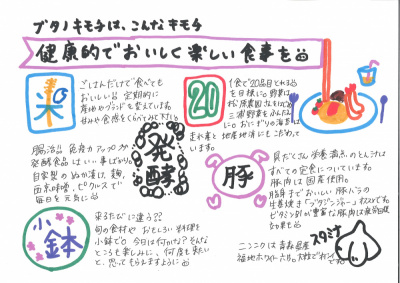 ブタノキモチは、こんなキモチ
健康的でおいしく楽しい食事を
米
ごはんだけで食べても
おいしい品 定期的に
産地やブランドを変えています。
甘みや食感をくらべてみて下さい
20
1食で20品目とれる
を目標に。野菜は
松原農園
三浦野菜
おにぎりの海苔は
走水産と地産地消にもこだわって
います。
腸活品 免疫力アップの
発酵食品はいい事ばかり。
自家製のぬか漬け、麹、
西京味噌、ピクルスで
毎日を元気に
発酵
豚
具だくさん栄養満点のとん汁は
すべての定食についています。
豚肉は国産使用。
脂身までおいしい豚バラの
生姜焼き
ビタミンB1が豊富な豚肉は疲労回復
効果も
小鉢
来るたびに違う??
旬の食材や おもしろい料理を
小鉢で 今日は何かな?そんな
ところも楽しみに、何度も来たい
と、思ってもらえますように
スタミナ
ニンニクは青森県産
福地ホワイト六片